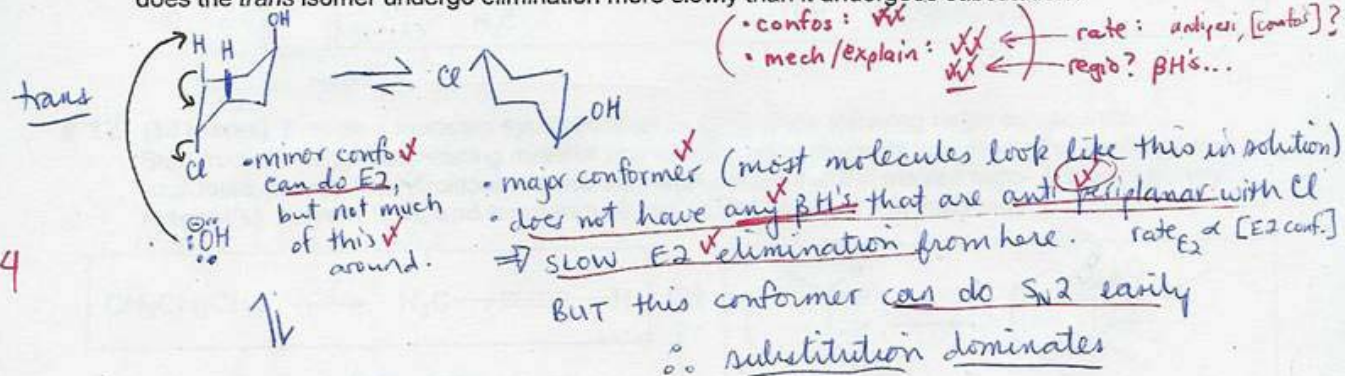 does the trans isomer undergo elimination more slowly than it undergoes
OH
• confos: ✓✓
• mech/explain: ✓✓ ← rate: antiperi, [confos]?
✓✓ ← regio? βH's...
trans
H H
Cl
OH
Cl
⊖:ÖH
• minor confo ✓
can do E2,
but not much
of this ✓
around.
4
• major conformer (most molecules look like this in solution)
• does not have any βH's that are anti periplanar with Cl
⇒ SLOW E2 elimination from here. rate E2 ∝ [E2 conf.]
BUT this conformer can do SN2 easily
∴ substitution dominates